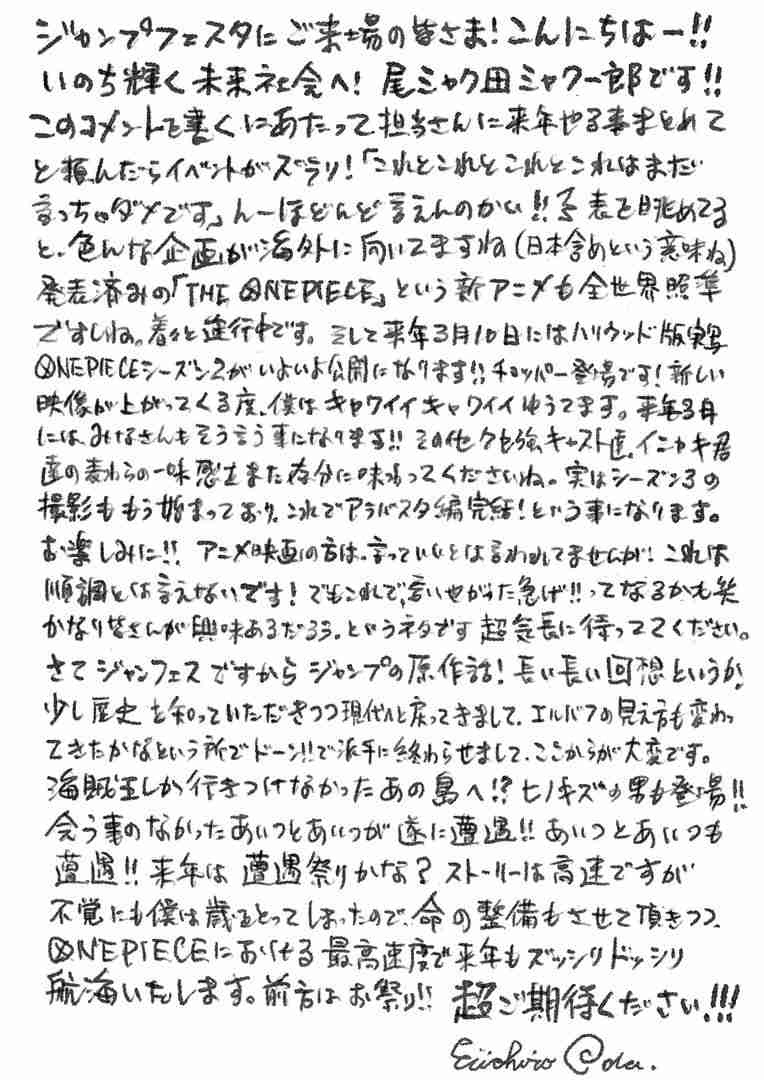 ジャンプフェスタにご来場の皆さま!こんにちはー!!
いのち輝く未来社会へ! 尾ミャク田ミャク一郎です!!
このコメントを書くにあたって担当さんに来年やる事まとめて
と頼んだらイベントがズラリ!「これとこれとこれとこれはまだ
言っちゃダメです」んーほとんど言えんのかい!!予表を眺めてる
と、色んな企画が海外に向いてますね(日本含めという意味ね)
発表済みの「THE ONE PIECE」という新アニメも全世界照準
ですしね。着々と進行中です。そして来年3月10日にはハリウッド版実写
ONE PIECEシーズン2がいよいよ公開になります!!チョッパー登場です!新しい
映像が上がってくる度、僕はキャワイイキャワイイゆうてます。来年3月
には、みなさんもそう言う事になります!!その他クセ強キャスト達、イニャキ君
達の麦わらの一味感もまた存分に味わってくださいね。実はシーズン3の
撮影ももう始まっており、これでアラバスタ編完結!という事になります。
お楽しみに!! アニメ映画の方は、言っていいとは言われてませんが!これは
順調とは言えないです!でもこれで、言いやがった急げ!!ってなるかも笑
かなり皆さんが興味あるだろう。というネタです超気長に待っててください。
さてジャンフェスですからジャンプの原作話!長い長い回想というか、
少し歴史を知っていただきつつ現代へと戻ってきまして、エルバフの見え方も変わっ
てきたかなという所でドーン!!で派手に終わらせまして、ここからが大変です。
海賊王しか行きつけなかったあの島へ!?ヒノキズの男も登場!!
会う事のなかったあいつとあいつが遂に遭遇!!あいつとあいつも
遭遇!!来年は遭遇祭りかな?ストーリーは高速ですが
不覚にも僕は歳をとってしまったので、命の整備もさせて頂きつつ、
ONE PIECEにおける最高速度で来年もズッシリドッシリ
航海いたします。前方はお祭り!! 超ご期待ください!!!
Eiichiro Oda.